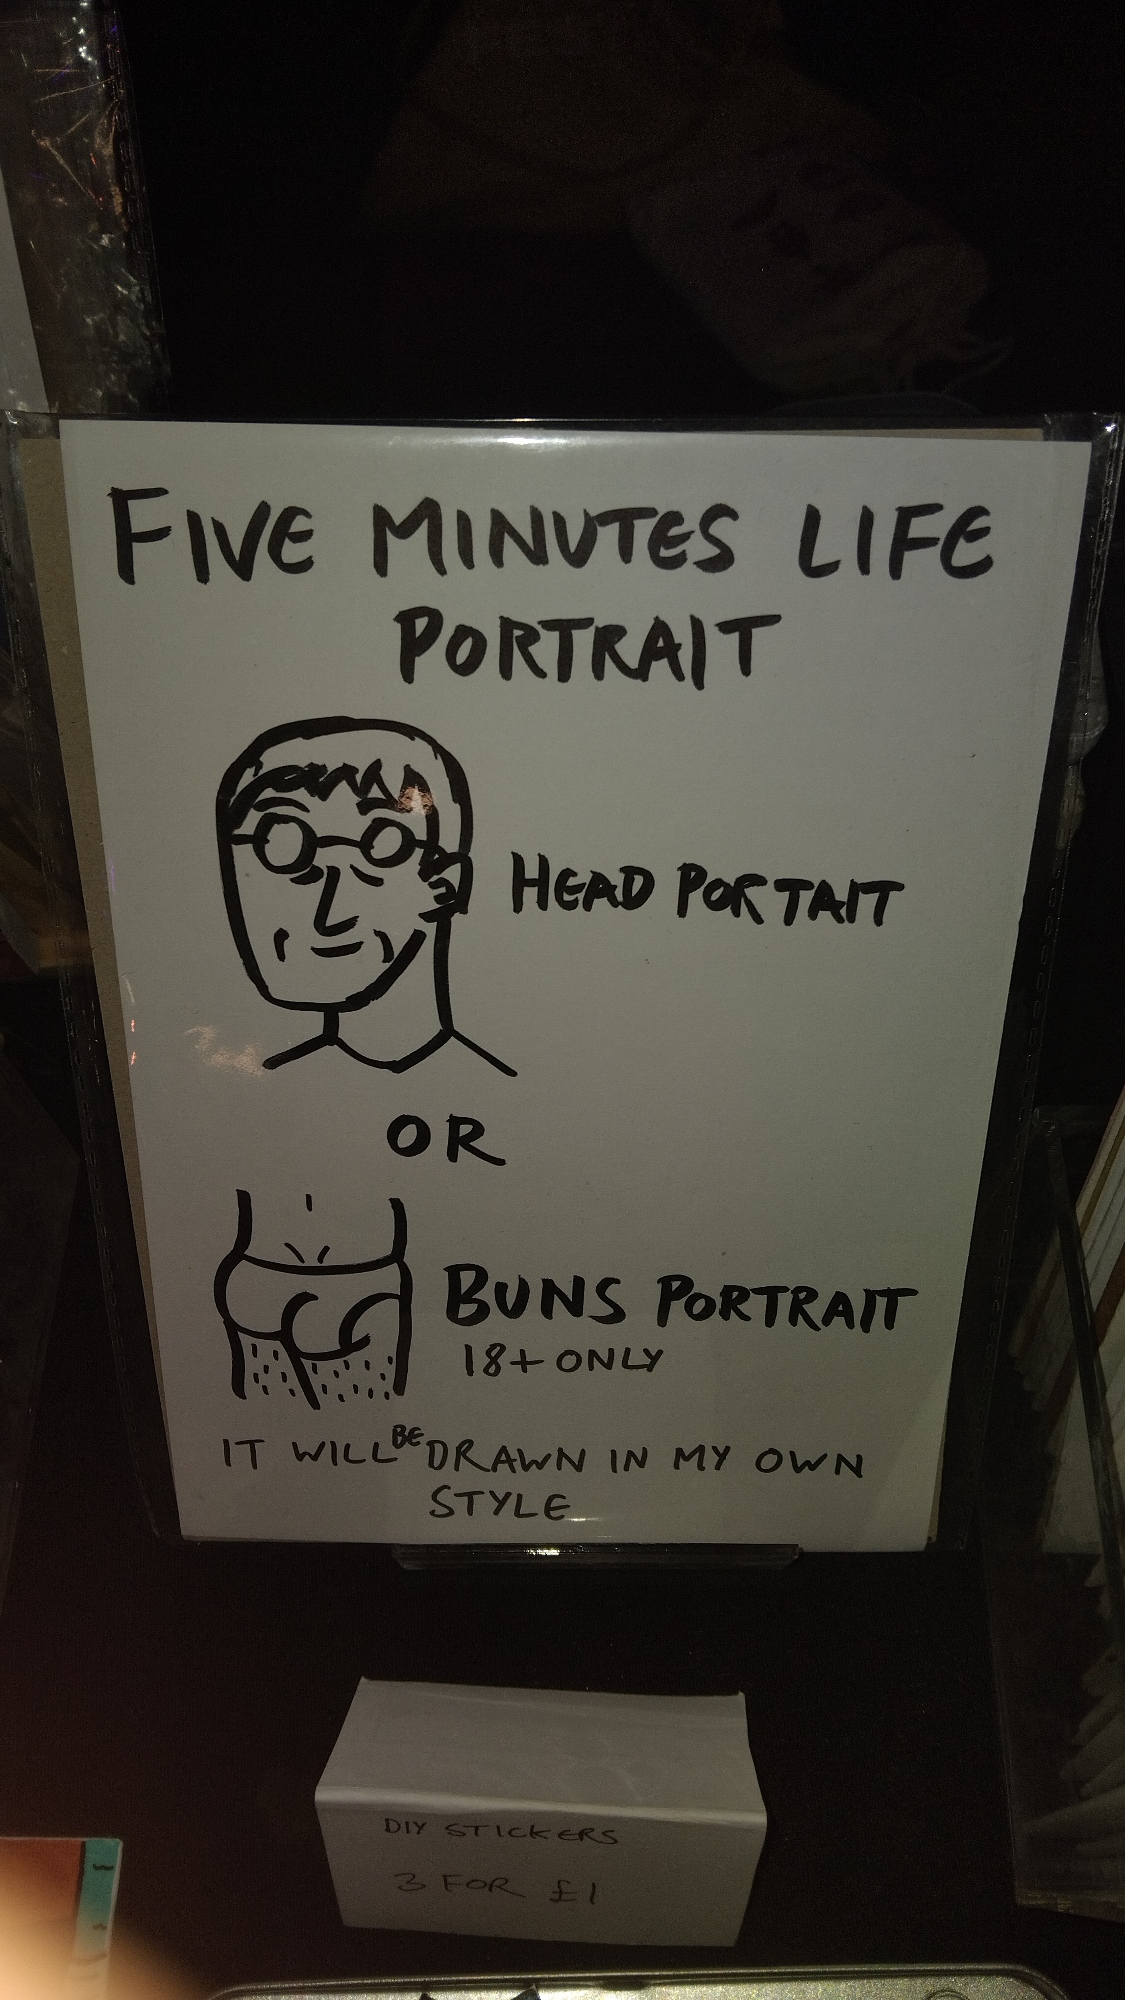 FIVE MINUTES LIFE
PORTRAIT
HEAD PORTAIT
OR
BUNS PORTRAIT
18+ ONLY
IT WILL BE DRAWN IN MY OWN
STYLE
DIY STICKERS
3 FOR £1